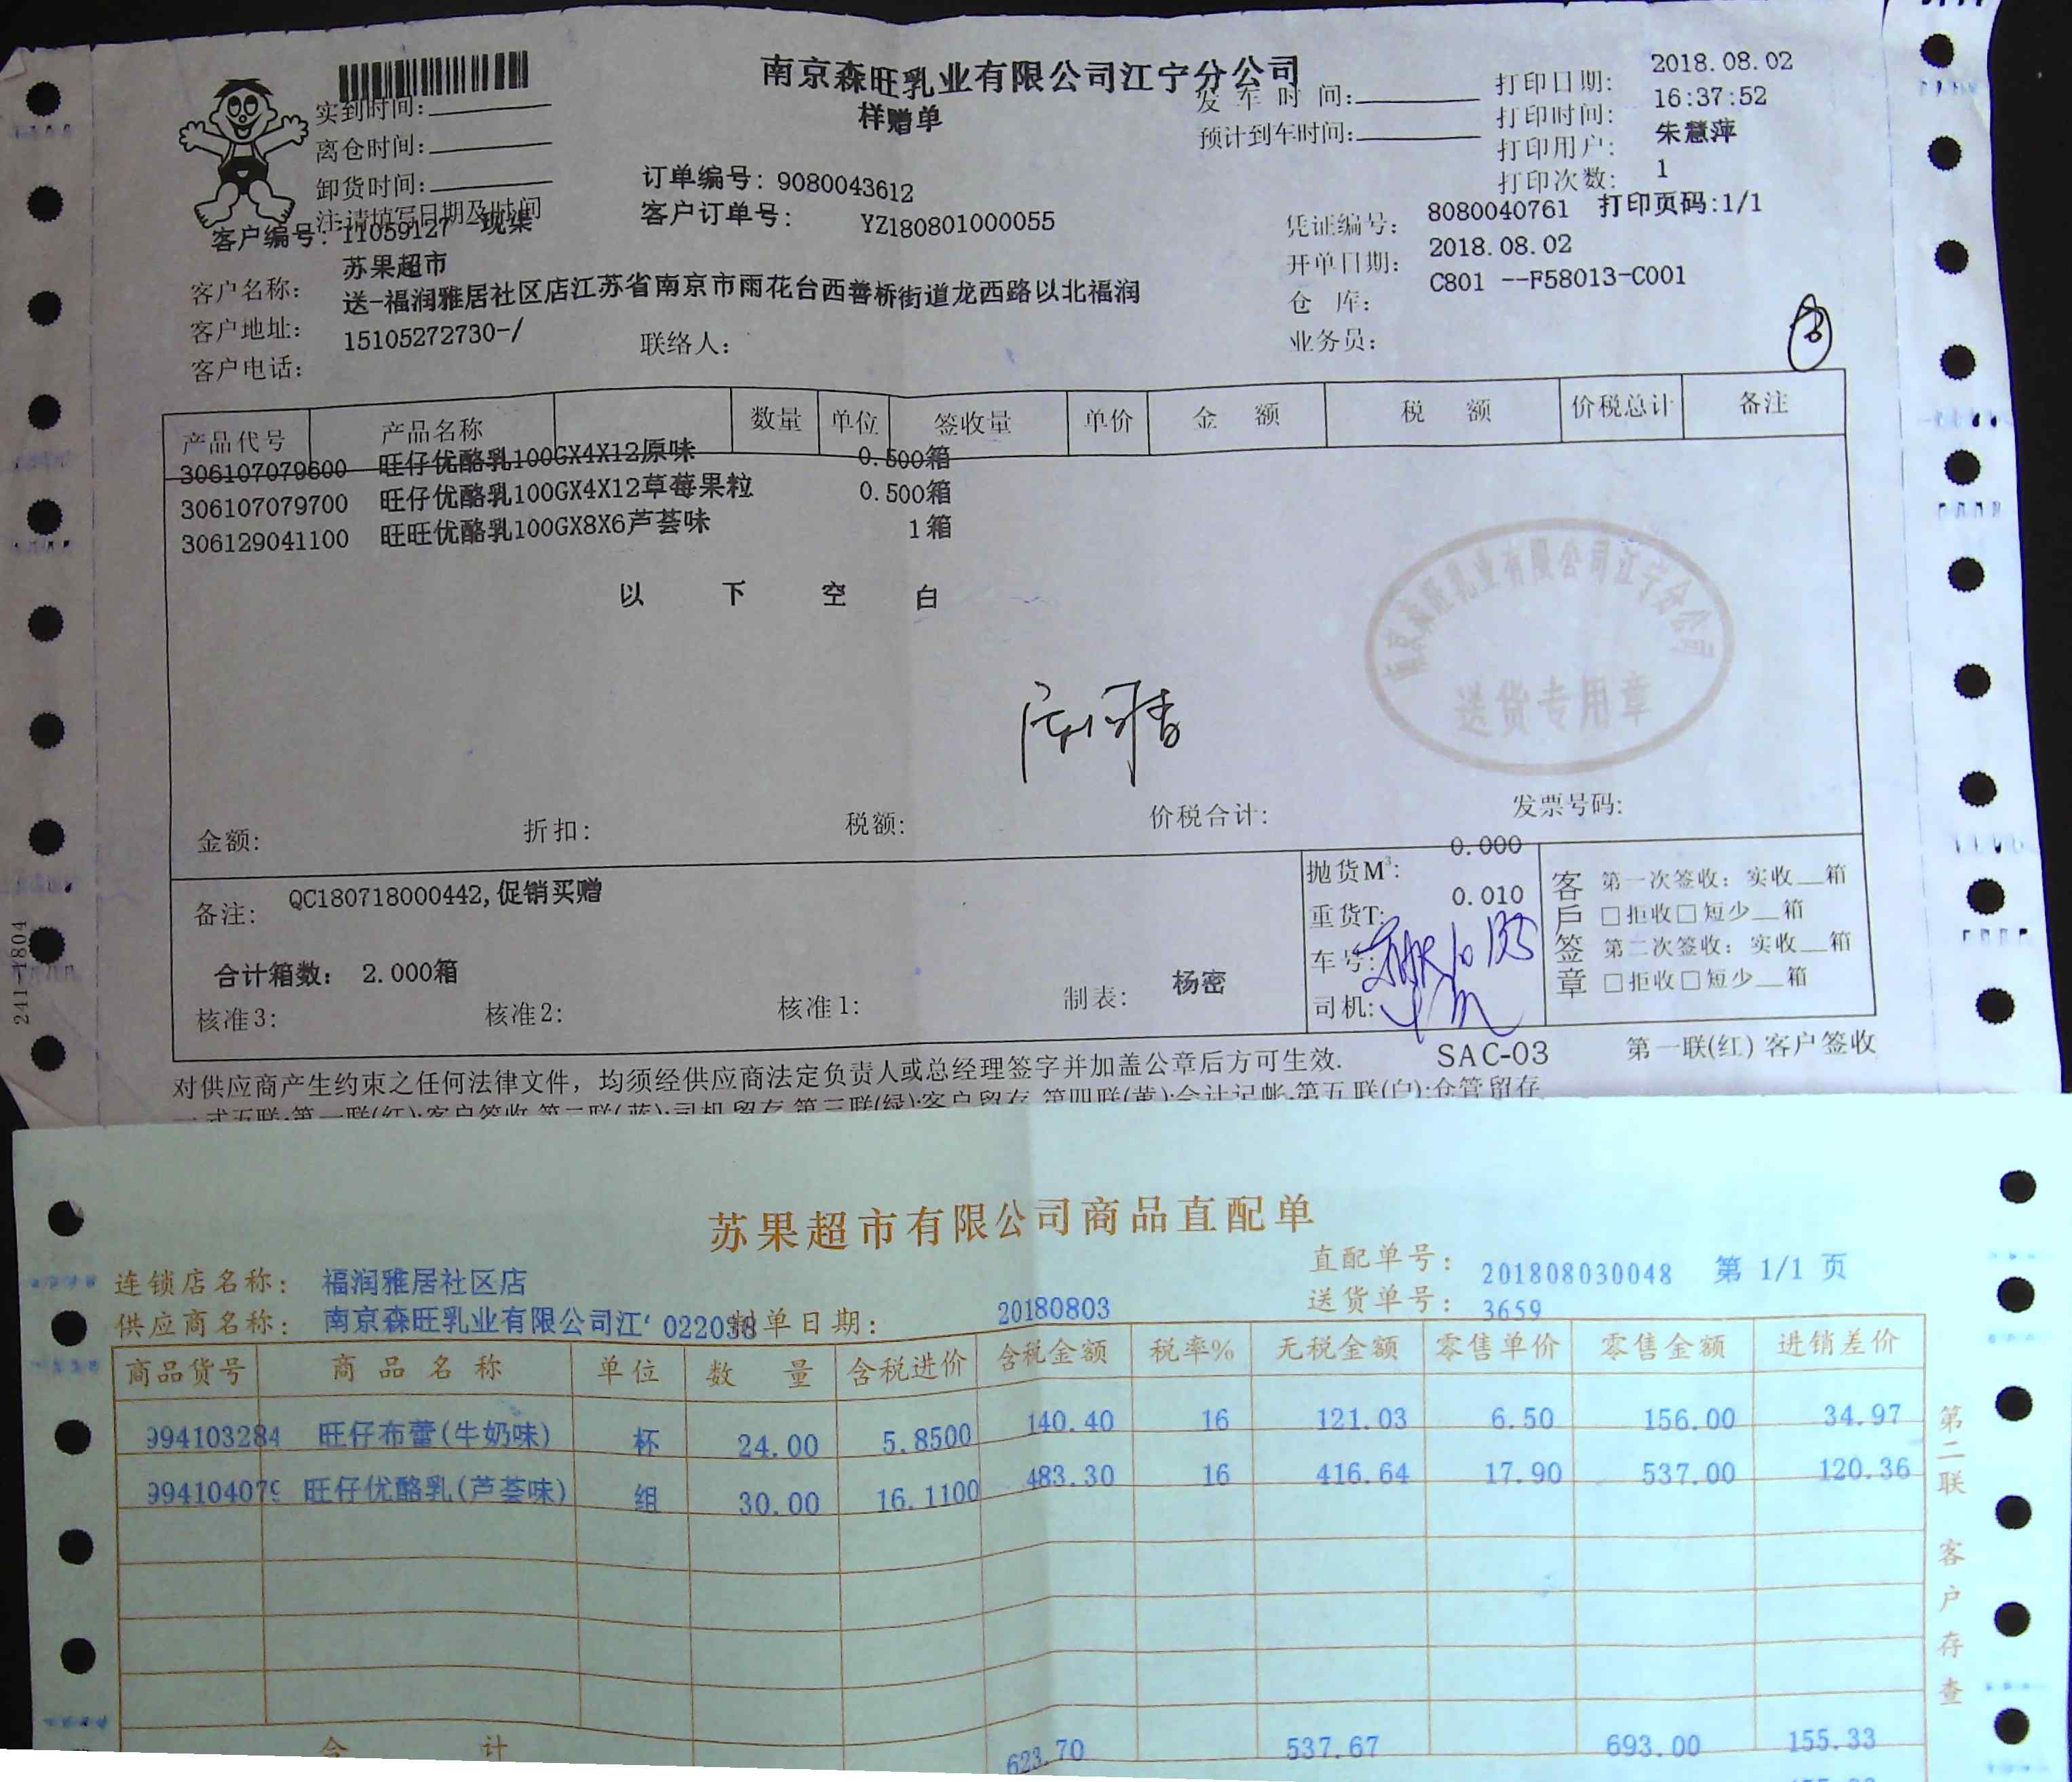 南京森旺乳业有限公司江宁分公司
样赠单
实到时间:
离仓时间:
卸货时间:
注:请填写日期及时间
发 车 时 间:
预计到车时间:
打印日期: 2018.08.02
打印时间: 16:37:52
打印用户: 朱慧萍
打印次数: 1
订单编号: 9080043612
客户订单号: YZ180801000055
凭证编号: 8080040761 打印页码:1/1
开单日期: 2018.08.02
仓 库: C801 --F58013-C001
业务员:
客户编号: 11059127 现渠
客户名称: 苏果超市
客户地址: 送-福润雅居社区店江苏省南京市雨花台西善桥街道龙西路以北福润
客户电话: 15105272730-/
联络人:
产品代号 产品名称 数量 单位 签收量 单价 金 额 税 额 价税总计 备注
306107079600 旺仔优酪乳100GX4X12原味 0.500箱
306107079700 旺仔优酪乳100GX4X12草莓果粒 0.500箱
306129041100 旺旺优酪乳100GX8X6芦荟味 1箱
以 下 空 白
南京森旺乳业有限公司江宁分公司
送货专用章
金额: 折扣: 税额: 价税合计: 发票号码:
备注: QC180718000442,促销买赠
合计箱数: 2.000箱
核准3: 核准2: 核准1: 制表: 杨密
抛货M³: 0.000
重货T: 0.010
车号:
司机:
客戶签章
第一次签收: 实收__箱
□拒收□短少__箱
第二次签收: 实收__箱
□拒收□短少__箱
241-1804
SAC-03 第一联(红)客户签收
对供应商产生约束之任何法律文件，均须经供应商法定负责人或总经理签字并加盖公章后方可生效.
一式五联:第一联(红):客户签收 第二联(蓝):司机留存 第三联(绿):客户留存 第四联(黄):会计记帐 第五联(白):仓管留存
苏果超市有限公司商品直配单
连锁店名称: 福润雅居社区店
直配单号: 201808030048 第 1/1 页
供应商名称: 南京森旺乳业有限公司江' 022038
制单日期: 20180803
送货单号: 3659
商品货号 商品名称 单位 数量 含税进价 含税金额 税率% 无税金额 零售单价 零售金额 进销差价
994103284 旺仔布蕾(牛奶味) 杯 24.00 5.8500 140.40 16 121.03 6.50 156.00 34.97
994104079 旺仔优酪乳(芦荟味) 组 30.00 16.1100 483.30 16 416.64 17.90 537.00 120.36
合 计 623.70 537.67 693.00 155.33
第二联 客户存查